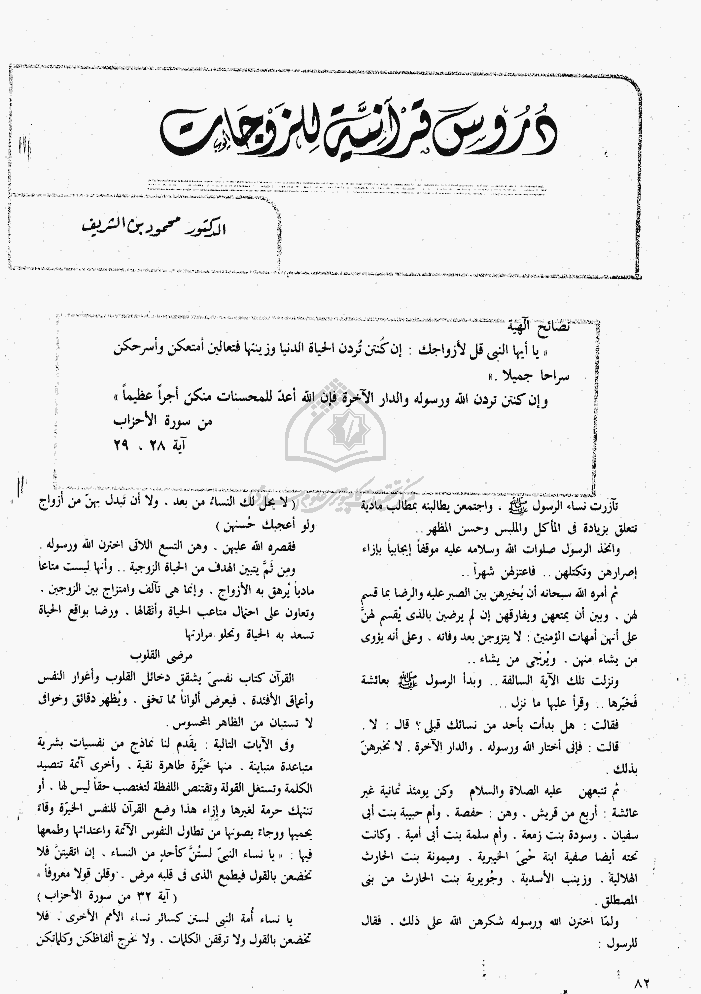 دُرُوس قرآنية للزوجات
الدكتور محمود بن الشريف
نصائح الهية
« يا أيها النبى قل لأزواجك : إن كُنتن تُردن الحياة الدنيا وزينتها فتعالين أمتعكن وأسرحكن
سراحا جميلا . »
وإن كنتن تردن الله ورسوله والدار الآخرة فإن الله أعدّ للمحسنات منكن أجراً عظيماً »
من سورة الأحزاب
آية ٢٨ ، ٢٩
تآزرت نساء الرسول ﷺ ، واجتمعن يطالبنه بمطالب مادية
تتعلق بزيادة فى المأكل والملبس وحسن المظهر ..
واتخذ الرسول صلوات الله وسلامه عليه موقفاً إيجابياً بإزاء
إصرارهن وتكتلهن .. فاعتزلهن شهراً ..
ثم أمره الله سبحانه أن يُخيرهن بين الصبر عليه والرضا بما قسم
لهن ، وبين أن يمتعهن ويفارقهن إن لم يرضين بالذى يُقسم لهنَّ
على أنهن أمهات المؤمنين : لا يتزوجن بعد وفاته ، وعلى أنه يؤوى
من يشاء منهن ، ويُرْجى من يشاء ..
ونزلت تلك الآية السالفة .. وبدأ الرسول ﷺ بعائشة
فخيّرها .. وقرأ عليها ما نزل ..
فقالت : هل بدأت بأحد من نسائك قبلى ؟ قال : لا .
قالت : فإنى أختار الله ورسوله ، والدار الآخرة . لا تخبرهنّ
بذلك .
ثم تتبعهن عليه الصلاة والسلام وكن يومئذ ثمانية غير
عائشة : أربع من قريش ، وهن : حفصة ، وأم حبيبة بنت أبى
سفيان ، وسودة بنت زمعة ، وأم سلمة بنت أبى أمية . وكانت
تحته أيضا صفية ابنة حُيىّ الخيبرية ، وميمونة بنت الحارث
الهلالية ، وزينب الأسدية ، وجُويرية بنت الحارث من بنى
المصطلق .
ولمّا اخترن الله ورسوله شكرهن الله على ذلك ، فقال
للرسول :
( لا يحل لك النساءُ من بعد ، ولا أن تبدل بهنّ من أزواج
ولو أعجبك حُسنهن )
فقصره الله عليهن ، وهن التسع اللاتى اخترن الله ورسوله .
ومن ثَمَّ يتبين الهدف من الحياة الزوجية .. وأنها ليست متاعاً
مادياً يُرهق به الأزواج . وإنما هى تآلف وامتزاج بين الزوجين .
وتعاون على احتمال متاعب الحياة وأثقالها ، ورضا بواقع الحياة
تسعد به الحياة وتحلو مرارتها
مرضى القلوب
القرآن كتاب نفسىّ يشقق دخائل القلوب وأغوار النفس
وأعماق الأفئدة ، فيعرض ألواناً مما تخفى ، ويُظهر دقائق وخوافى
لا تستبان من الظاهر المحسوس .
وفى الآيات التالية : يقدم لنا نماذج من نفسيات بشرية
متباعدة متباينة . منها خيّرة طاهرة نقية . وأخرى آثمة تتصيد
الكلمة وتستغل القولة وتقتنص اللفظة لتغتصب حقاً ليس لها ، أو
تنتهك حرمة لغيرها وإزاء هذا وضع القرآن للنفس الخيّرة وقاءً
يحميها ووجاءً يصونها من تطاول النفوس الآثمة واعتدائها وطمعها
فيها : « يا نساء النبىّ لستُنّ كأحدٍ من النساء . إن اتقيتنّ فلا
تخضعن بالقول فيطمع الذى فى قلبه مرض . وقلن قولا معروفاً »
( آية ٣٢ من سورة الأحزاب )
يا نساء أُمة النبى لستن كسائر نساء الأمم الأخرى . فلا
تخضعن بالقول ولا ترققن الكلمات . ولا تخرج ألفاظكن وكلماتكن
٨٢